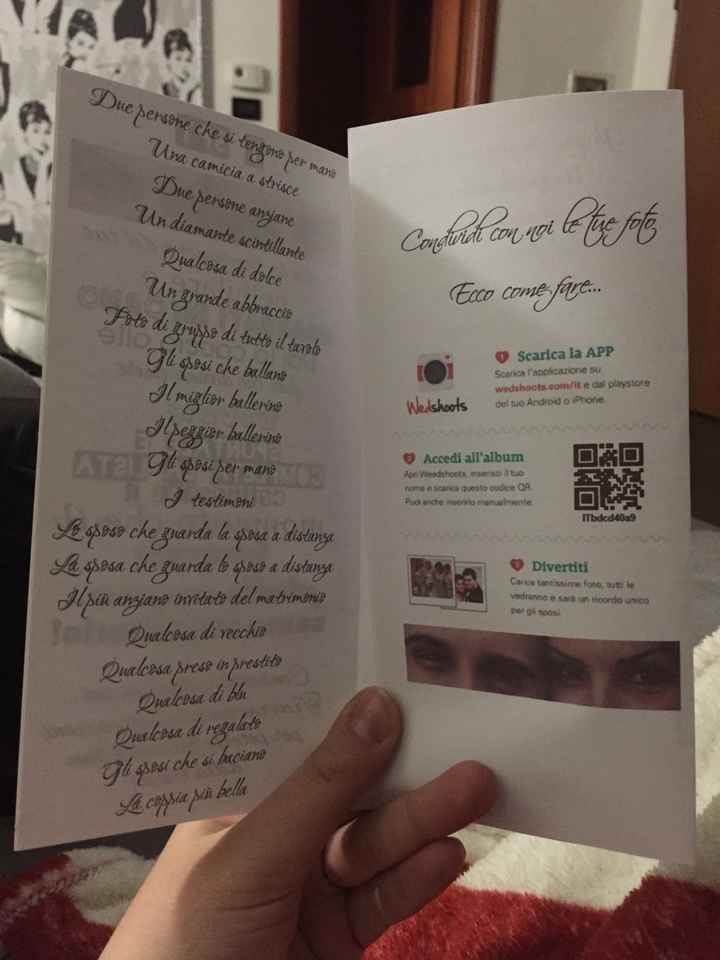 Due persone che si tengono per mano
Una camicia a strisce
Due persone anziane
Un diamante scintillante
Qualcosa di dolce
Un grande abbraccio
Foto di gruppo di tutto il tavolo
Gli sposi che ballano
Il miglior ballerino
Il peggior ballerino
Gli sposi per mano
I testimoni
Lo sposo che guarda la sposa a distanza
La sposa che guarda lo sposo a distanza
Il più anziano invitato del matrimonio
Qualcosa di vecchio
Qualcosa preso in prestito
Qualcosa di blu
Qualcosa di regalato
Gli sposi che si baciano
La coppia più bella
Condividi con noi le tue foto
Ecco come fare...
Wedshoots
1 Scarica la APP
Scarica l'applicazione su
wedshoots.com/it e dal playstore
del tuo Android o iPhone.
2 Accedi all'album
Apri Weadshoots, inserisci il tuo
nome e scarica questo codice QR.
Puoi anche inserirlo manualmente.
ITbdcd40a9
3 Divertiti
Carica tantissime foto, tutti le
vedranno e sarà un ricordo unico
per gli sposi.